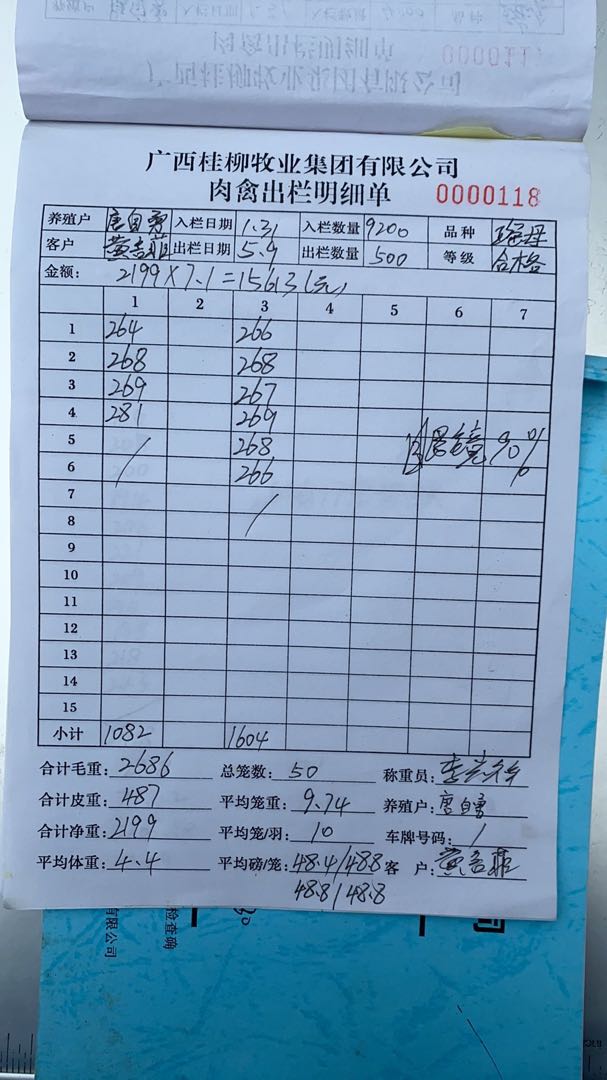 0000117
广西桂柳牧业集团有限公司
肉禽出栏明细单 0000118
养殖户 唐自勇 入栏日期 1.31 入栏数量 9200 品种
客户 出栏日期 5.9 出栏数量 500 等级 合格
金额: 2199×7.1=15613(元)
1 2 3 4 5 6 7
1 264 266
2 268 268
3 269 267
4 281 269
5 / 268 90%
6 266
7 /
8
9
10
11
12
13
14
15
小计 1082 1604
合计毛重: 2686 总笼数: 50 称重员:
合计皮重: 487 平均笼重: 9.74 养殖户: 唐自勇
合计净重: 2199 平均笼/羽: 10 车牌号码: /
平均体重: 4.4 平均磅/笼: 48.4/48.8 客 户:
48.8/48.8
检查确
有限公司
司